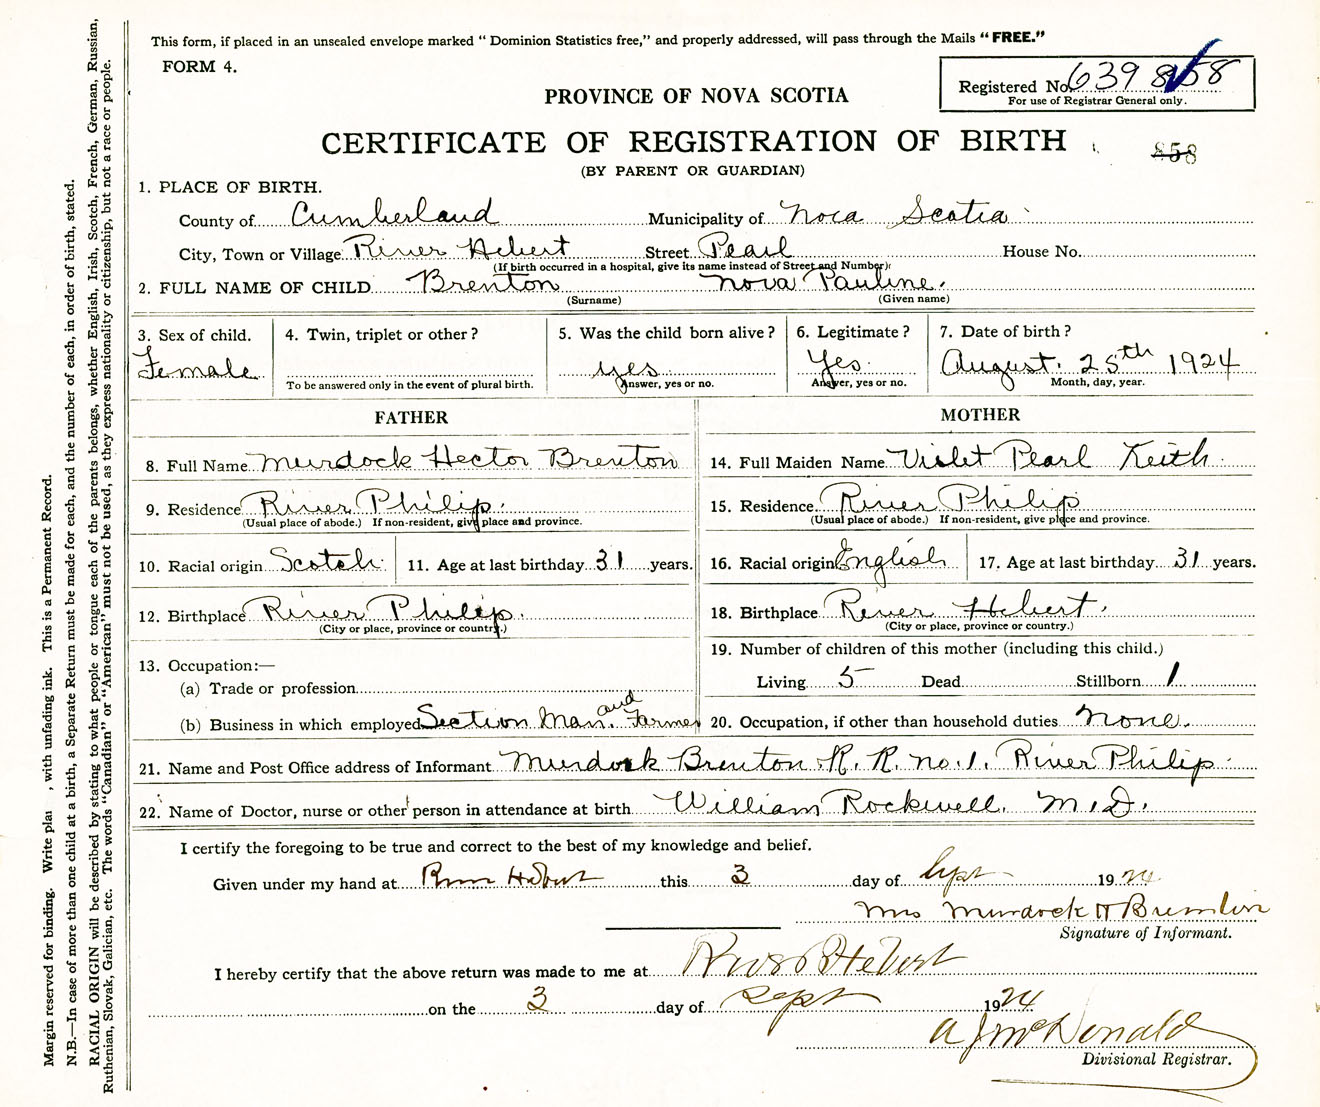 This form, if placed in an unsealed envelope marked "Dominion Statistics free," and properly addressed, will pass through the Mails "FREE."
FORM 4.
Registered No. 639 858
For use of Registrar General only.
PROVINCE OF NOVA SCOTIA
CERTIFICATE OF REGISTRATION OF BIRTH
858
(BY PARENT OR GUARDIAN)
1. PLACE OF BIRTH.
County of Cumberland Municipality of Nova Scotia
City, Town or Village River Hebert Street Pearl House No.
(If birth occurred in a hospital, give its name instead of Street and Number)
2. FULL NAME OF CHILD Brenton Nova Pauline.
(Surname) (Given name)
3. Sex of child. 4. Twin, triplet or other? 5. Was the child born alive? 6. Legitimate? 7. Date of birth?
Female yes Yes. August. 25th 1924
To be answered only in the event of plural birth. Answer, yes or no. Answer, yes or no. Month, day, year.
FATHER MOTHER
8. Full Name Murdock Hector Brenton 14. Full Maiden Name Violet Pearl Keith
9. Residence River Philip. 15. Residence River Philip
(Usual place of abode.) If non-resident, give place and province. (Usual place of abode.) If non-resident, give place and province.
10. Racial origin Scotch 11. Age at last birthday 31 years. 16. Racial origin English 17. Age at last birthday 31 years.
12. Birthplace River Philip. 18. Birthplace River Hebert.
(City or place, province or country.) (City or place, province or country.)
13. Occupation:— 19. Number of children of this mother (including this child.)
(a) Trade or profession Living 5 Dead Stillborn 1
(b) Business in which employed Section Man. and Farmer 20. Occupation, if other than household duties None.
21. Name and Post Office address of Informant Murdock Brenton R. R. No. 1. River Philip
22. Name of Doctor, nurse or other person in attendance at birth William Rockwell. M.D.
I certify the foregoing to be true and correct to the best of my knowledge and belief.
Given under my hand at River Hebert this 3 day of Sept 1924
Mrs Murdock H Brenton
Signature of Informant.
I hereby certify that the above return was made to me at River Hebert
on the 3 day of Sept 1924
A J McDonald
Divisional Registrar.
Margin reserved for binding. Write , with unfading ink. This is a Permanent Record.
N.B.—In case of more than one child at a birth, a Separate Return must be made for each, and the number of each, in order of birth, stated.
RACIAL ORIGIN will be described by stating to what people or tongue each of the parents belongs, whether English, Irish, Scotch, French, German, Russian,
Ruthenian, Slovak, Galician, etc. The words "Canadian" or "American" must not be used, as they express nationality or citizenship, but not a race or people.